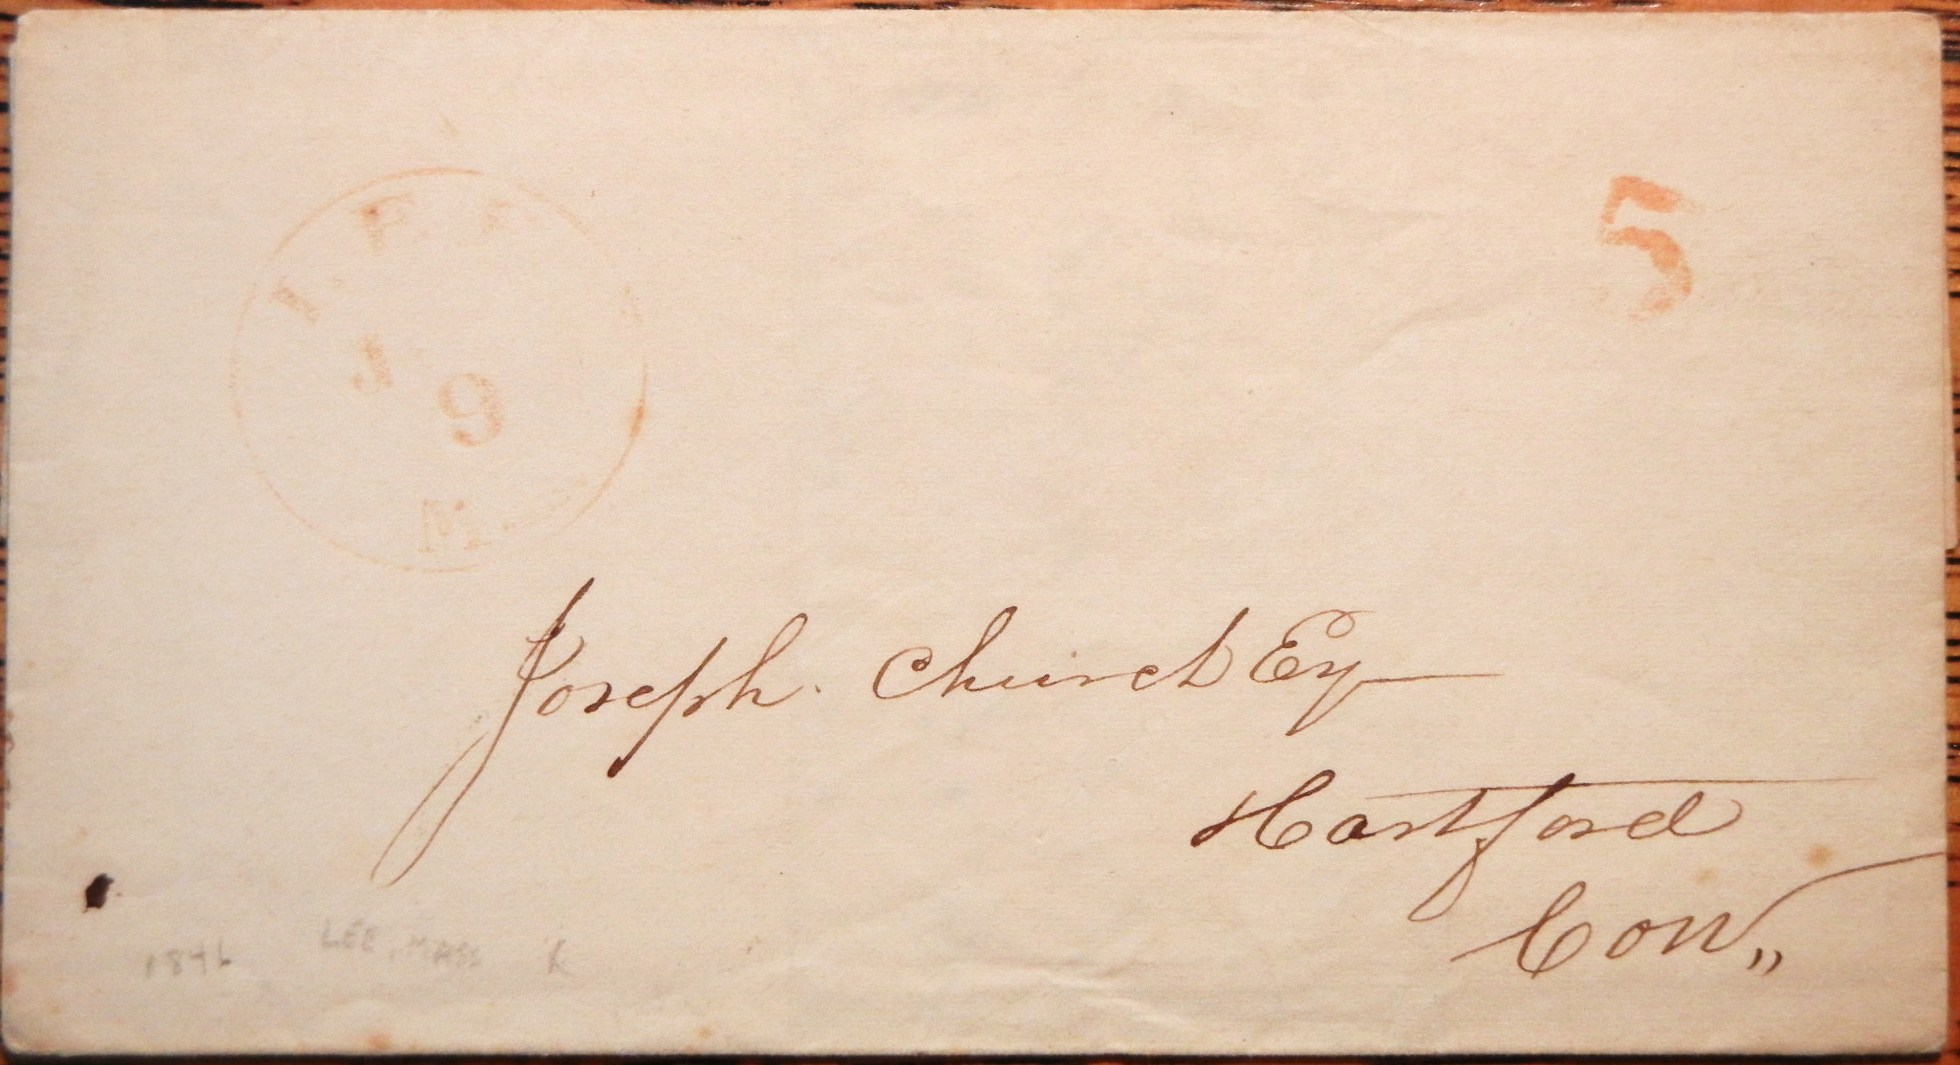 LEE
J
9
M
5
Joseph. Church Esq
Hartford
Con,,
1846 LEE, MASS